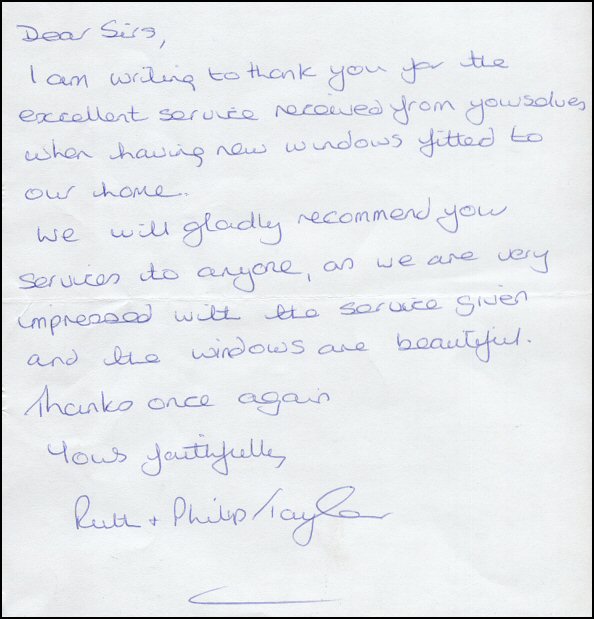 Dear Sirs,
I am writing to thank you for the
excellent service received from yourselves
when having new windows fitted to
our home.
We will gladly recommend your
services to anyone, as we are very
impressed with the service given
and the windows are beautiful.
Thanks once again
Yours faithfully,
Ruth + Philip Taylor